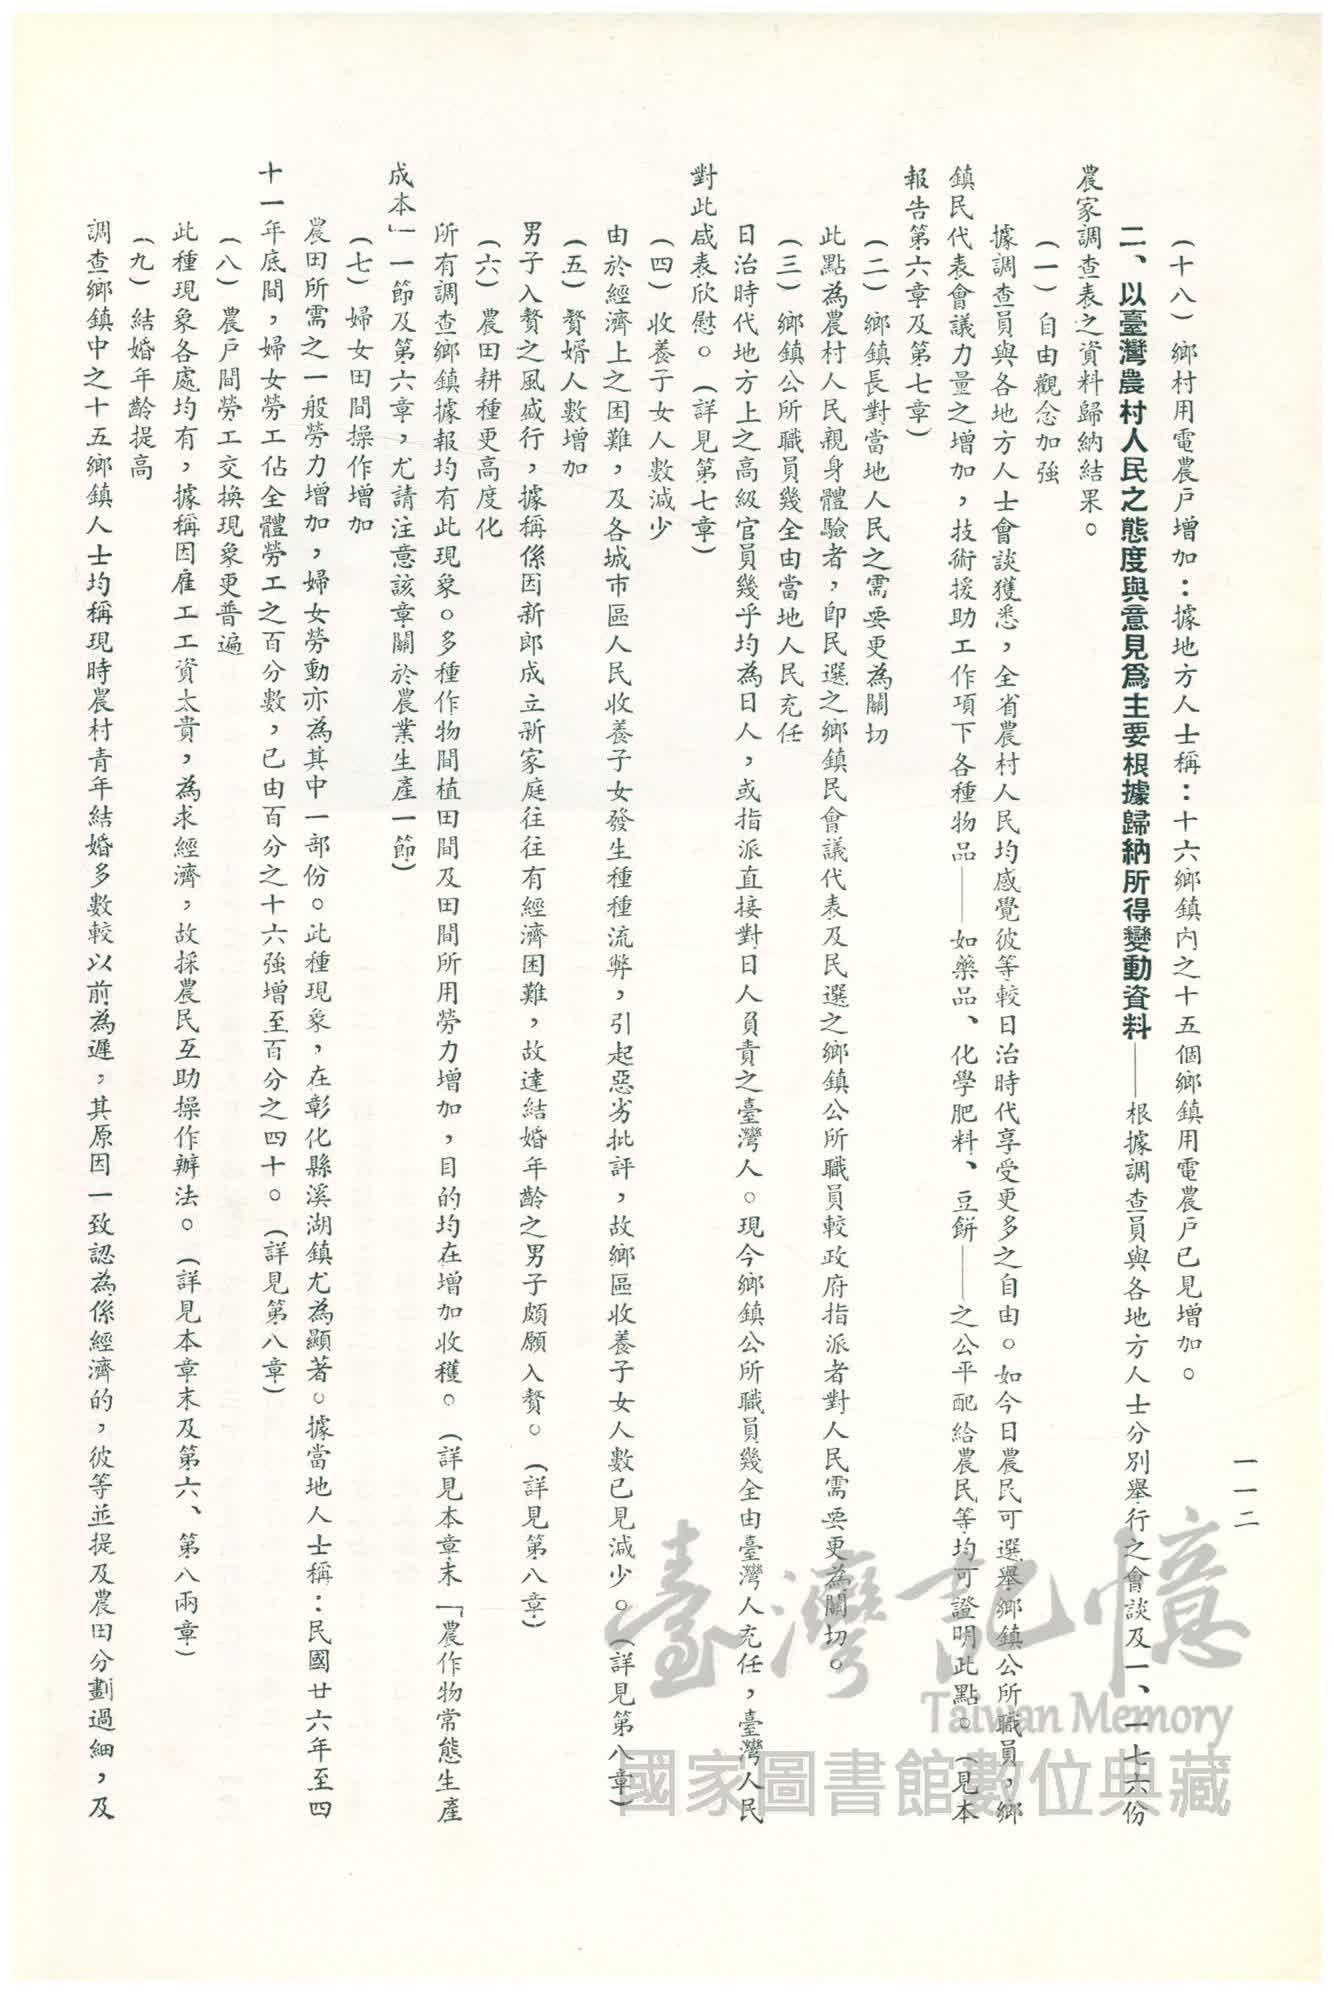 一一二
(十八)鄉村用電農戶增加:據地方人士稱:十六鄉鎮內之十五個鄉鎮用電農戶已見增加。
二、以臺灣農村人民之態度與意見爲主要根據歸納所得變動資料——根據調查員與各地方人士分別舉行之會談及一、一七六份
農家調查表之資料歸納結果。
(一)自由觀念加強
據調查員與各地方人士會談獲悉,全省農村人民均感覺彼等較日治時代享受更多之自由。如今日農民可選舉鄉鎮公所職員,鄉
鎮民代表會議力量之增加,技術援助工作項下各種物品——如藥品、化學肥料、豆餅——之公平配給農民等均可證明此點。(見本
報告第六章及第七章)
(二)鄉鎮長對當地人民之需要更為關切
此點為農村人民親身體驗者,卽民選之鄉鎮民會議代表及民選之鄉鎮公所職員較政府指派者對人民需要更為關切。
(三)鄉鎮公所職員幾全由當地人民充任
日治時代地方上之高級官員幾乎均為日人,或指派直接對日人負責之臺灣人。現今鄉鎮公所職員幾全由臺灣人充任,臺灣人民
對此咸表欣慰。(詳見第七章)
(四)收養子女人數減少
由於經濟上之困難,及各城市區人民收養子女發生種種流弊,引起惡劣批評,故鄉區收養子女人數已見減少。(詳見第八章)
(五)贅婿人數增加
男子入贅之風盛行,據稱係因新郎成立新家庭往往有經濟困難,故達結婚年齡之男子頗願入贅。(詳見第八章)
(六)農田耕種更高度化
所有調查鄉鎮據報均有此現象。多種作物間植田間及田間所用勞力增加,目的均在增加收穫。(詳見本章末「農作物常態生產
成本」一節及第六章,尤請注意該章關於農業生產一節)
(七)婦女田間操作增加
農田所需之一般勞力增加,婦女勞動亦為其中一部份。此種現象,在彰化縣溪湖鎮尤為顯著。據當地人士稱:民國廿六年至四
十一年底間,婦女勞工佔全體勞工之百分數,已由百分之十六強增至百分之四十。(詳見第八章)
(八)農戶間勞工交換現象更普遍
此種現象各處均有,據稱因雇工工資太貴,為求經濟,故採農民互助操作辦法。(詳見本章末及第六、第八兩章)
(九)結婚年齡提高
調查鄉鎮中之十五鄉鎮人士均稱現時農村青年結婚多數較以前為遲,其原因一致認為係經濟的,彼等並提及農田分劃過細,及
臺灣記憶
Taiwan Memory
國家圖書館數位典藏